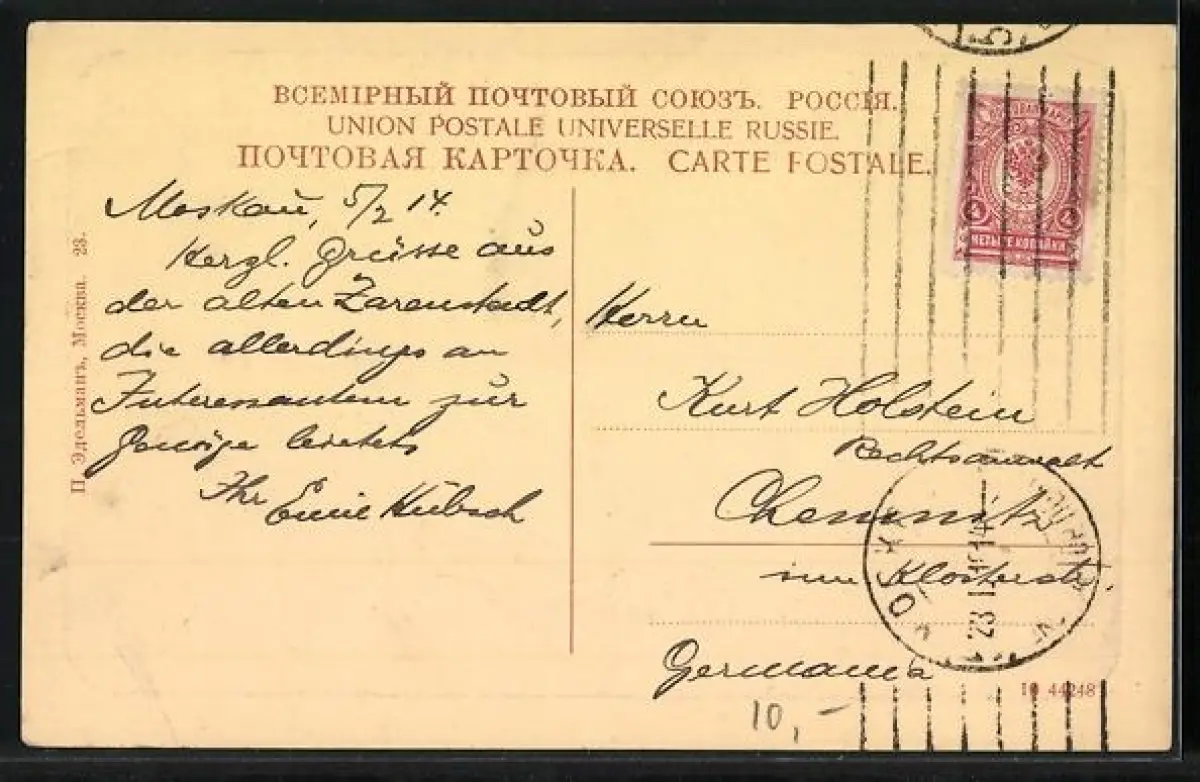 ВСЕМІРНЫЙ ПОЧТОВЫЙ СОЮЗЪ. РОССІЯ.
UNION POSTALE UNIVERSELLE RUSSIE.
ПОЧТОВАЯ КАРТОЧКА. CARTE POSTALE.
4 4
ЧЕТЫРЕ КОПѢЙКИ
П. Эдельманъ, Москва. 23.
Moskau, 5/2 14.
Hergl. Grüsse aus
der alten Zarenstadt,
die allerdings an
Interessantem zur
Genüge bietet
Ihr Emil Hübsch
Herrn
Kurt Holstein
Rechtsanwalt
Chemnitz
Klosterstr.
Germania
МОСКВА
23 1 14
10 44248
10,-